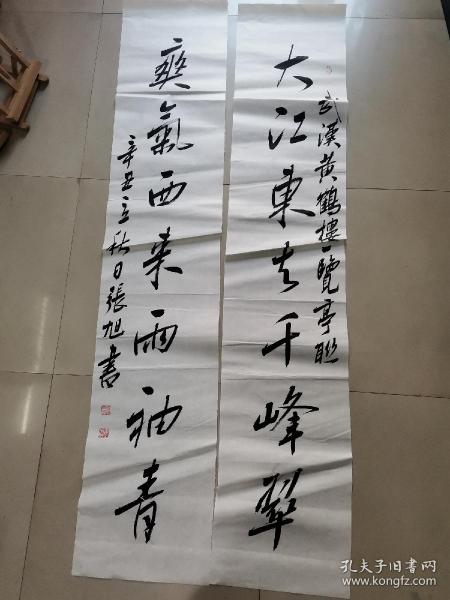 大江東去千峰翠
武漢黄鶴樓一覽亭聯
爽氣西來兩袖青
辛丑立秋日張旭書
孔夫子旧书网
www.kongfz.com